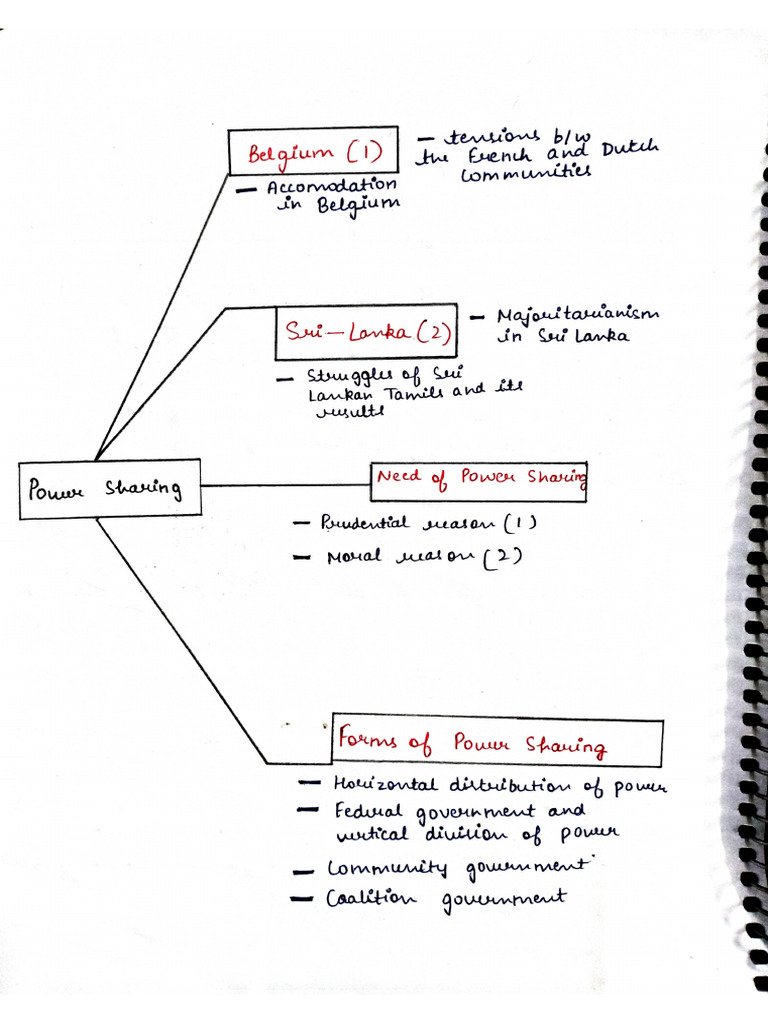 Belgium (1)
– tensions b/w
the French and Dutch
Communities
– Accomodation
in Belgium
Sri-Lanka (2)
– Majoritarianism
in Sri Lanka
– Struggles of Sri
Lankan Tamils and its
results
Power Sharing
Need of Power Sharing
– Prudential reason (1)
– Moral reason (2)
Forms of Power Sharing
– Horizontal distribution of power
– Federal government and
vertical division of power
– Community government
– Coalition government